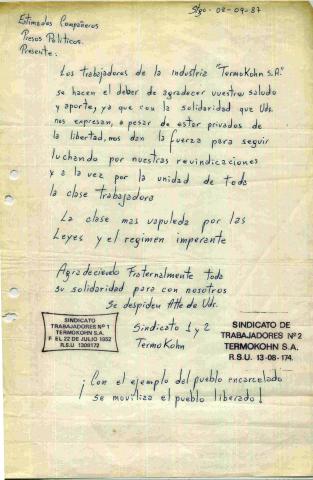 Stgo - 02-09-87
Estimados Compañeros
Presos Políticos.
Presente:
Los trabajadores de la industria "TermoKohn S.A."
se hacen el deber de agradecer vuestro saludo
y aporte, ya que con la solidaridad que Uds.
nos expresan, a pesar de estar privados de
la libertad, nos dan la fuerza para seguir
luchando por nuestras reivindicaciones
y a la vez por la unidad de toda
la clase trabajadora
La clase mas vapuleda por las
Leyes y el regimen imperante
Agradeciendo Fraternalmente toda
su solidaridad para con nosotros
Se despiden Atte de Uds.
Sindicato 1 y 2
TermoKohn
SINDICATO
TRABAJADORES Nº 1
TERMOKOHN S.A.
F. EL 22 DE JULIO 1952
R.S.U 1308172
SINDICATO DE
TRABAJADORES Nº 2
TERMOKOHN S.A.
R.S.U. 13-08-174.
¡Con el ejemplo del pueblo encarcelado
se moviliza el pueblo liberado!